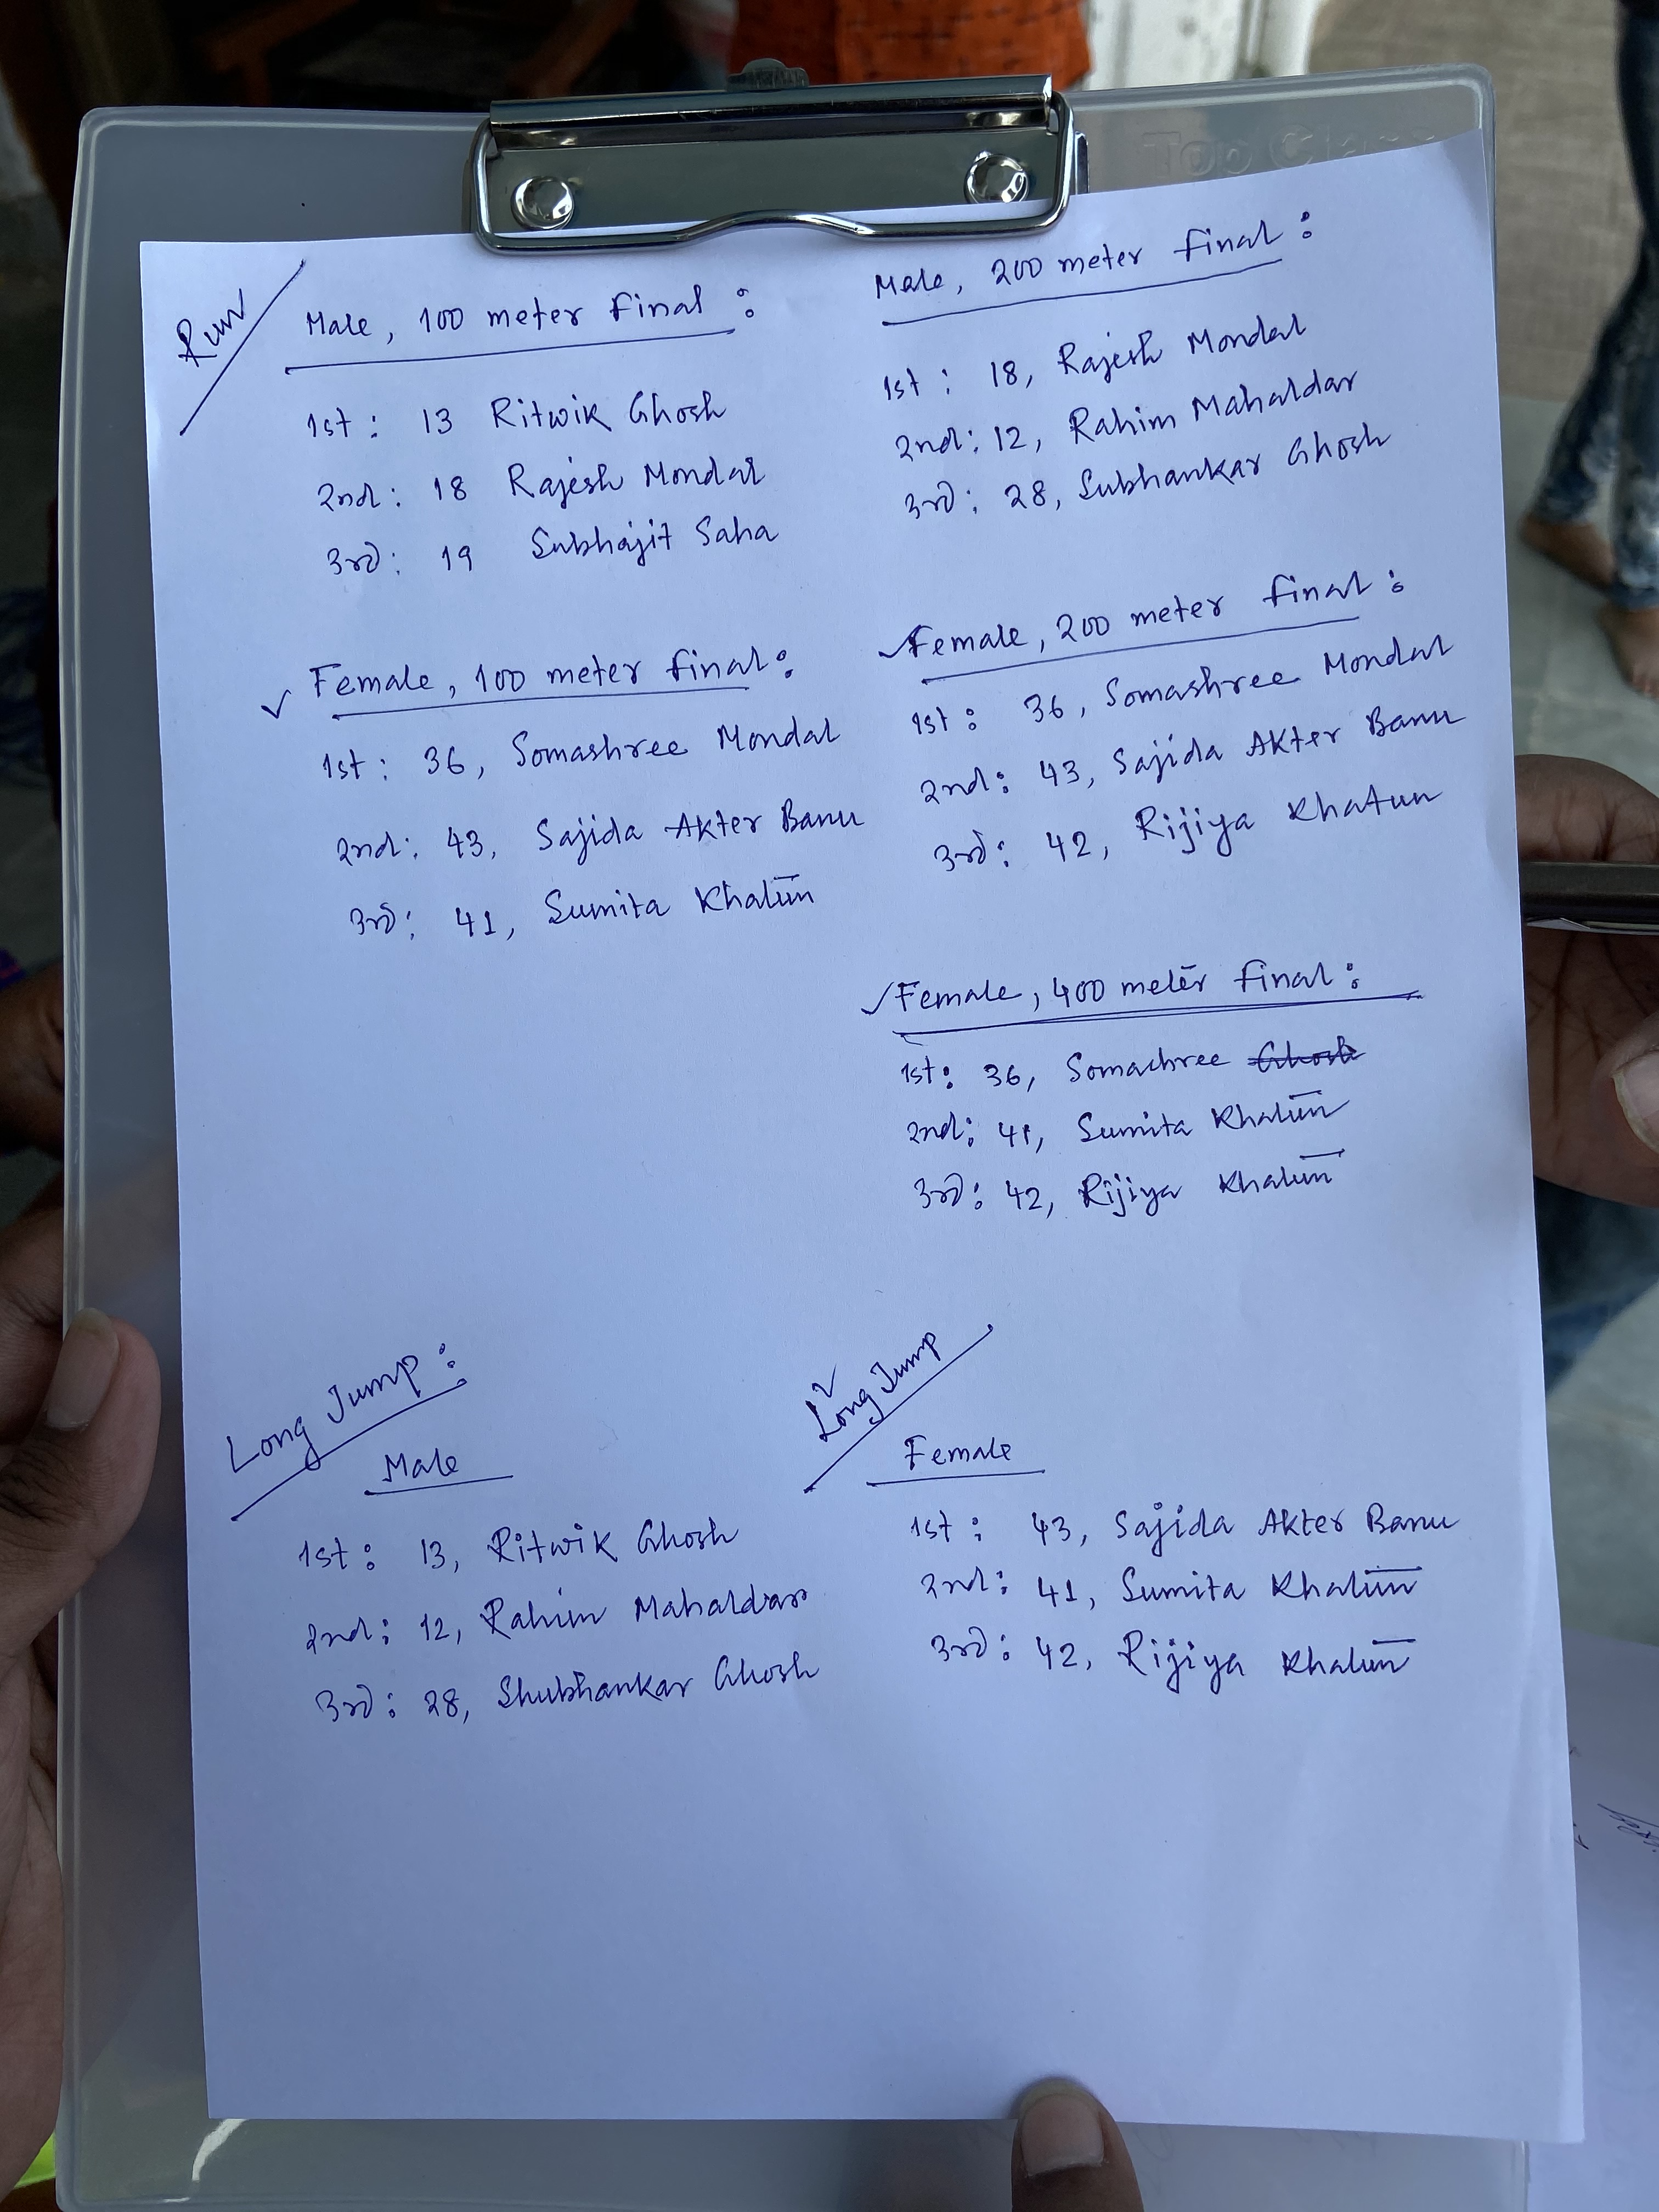 Run
Male, 100 meter final :
1st : 13 Ritwik Ghosh
2nd : 18 Rajesh Mondal
3rd : 19 Subhajit Saha
Female, 100 meter final :
1st : 36, Somashree Mondal
2nd : 43, Sajida Akter Banu
3rd : 41, Sumita Khatun
Male, 200 meter final :
1st : 18, Rajesh Mondal
2nd : 12, Rahim Mahaldar
3rd : 28, Subhankar Ghosh
Female, 200 meter final :
1st : 36, Somashree Mondal
2nd : 43, Sajida Akter Banu
3rd : 42, Rijiya Khatun
Female, 400 meter final :
1st : 36, Somashree Ghosh
2nd : 41, Sumita Khatun
3rd : 42, Rijiya Khatun
Long Jump :
Male
1st : 13, Ritwik Ghosh
2nd : 12, Rahim Mahaldar
3rd : 28, Shubhankar Ghosh
Long Jump
Female
1st : 43, Sajida Akter Banu
2nd : 41, Sumita Khatun
3rd : 42, Rijiya Khatun